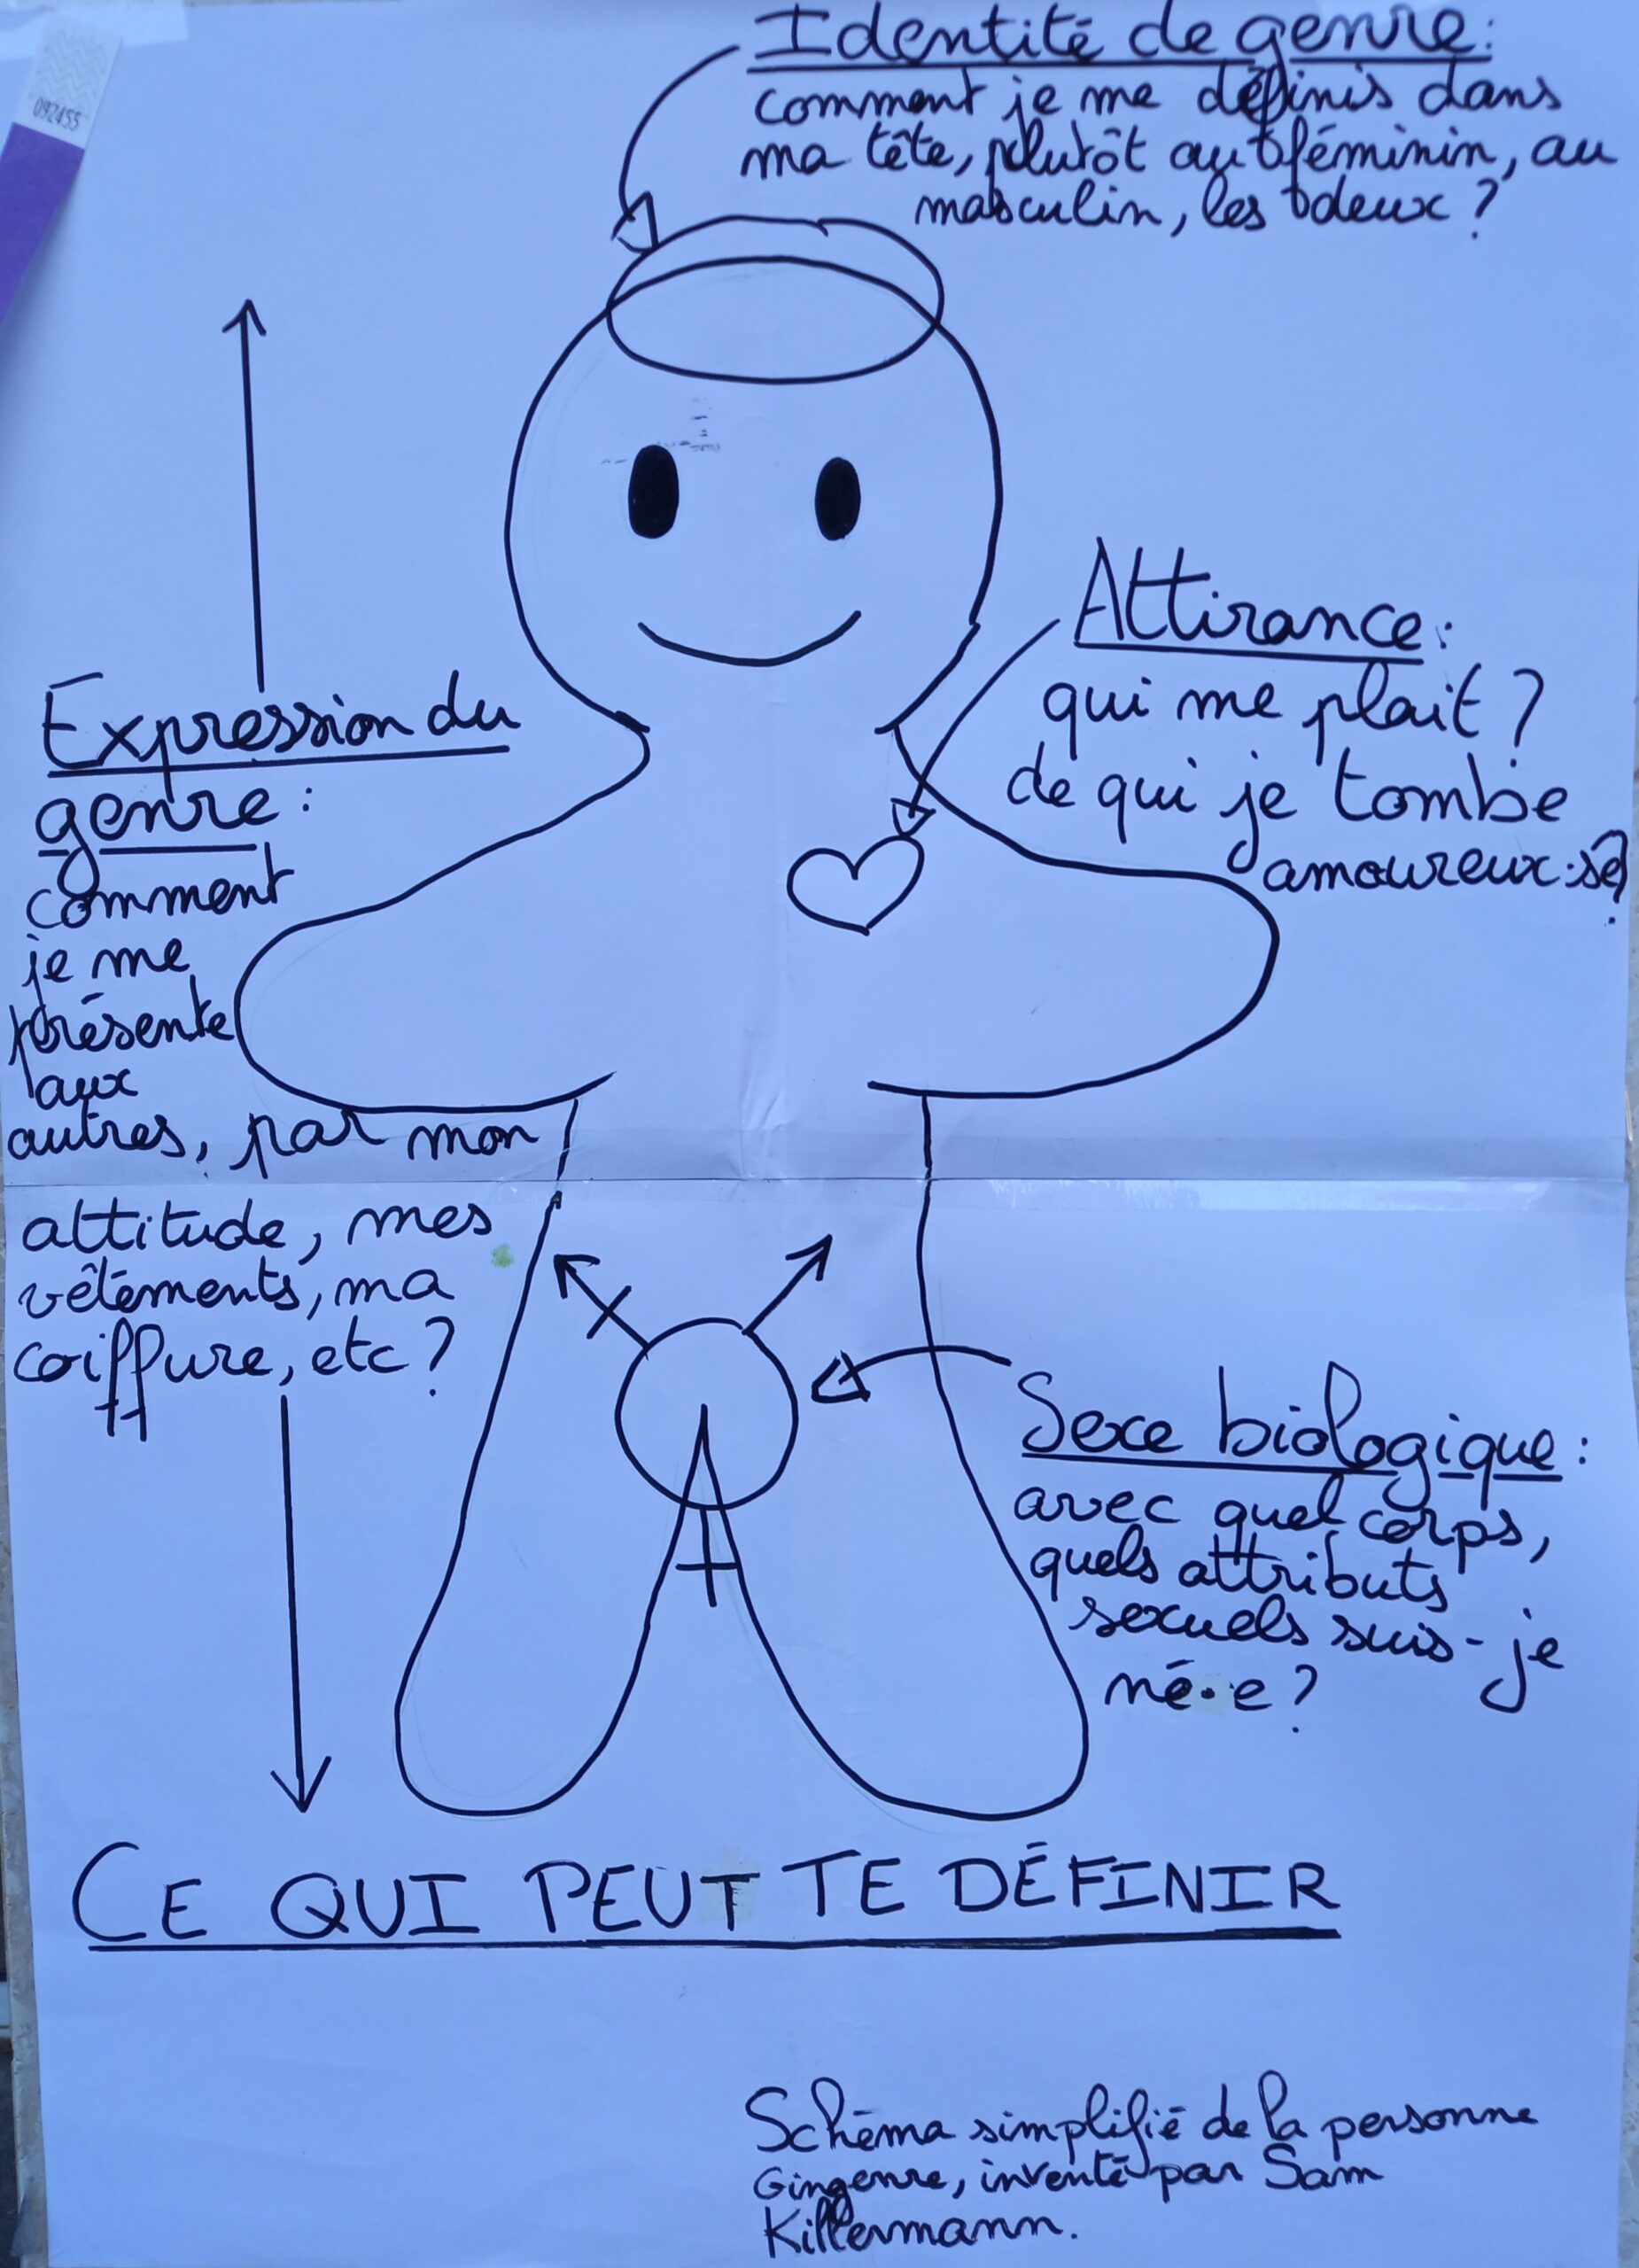 Identité de genre:
comment je me définis dans
ma tête, plutôt au féminin, au
masculin, les deux ?
Attirance:
qui me plait ?
de qui je tombe
amoureux·se ?
Expression du
genre :
comment
je me
présente
aux
autres, par mon
attitude, mes
vêtements, ma
coiffure, etc ?
Sexe biologique :
avec quel corps,
quels attributs
sexuels suis-je
né·e ?
CE QUI PEUT TE DÉFINIR
Schéma simplifié de la personne
Gingenre, inventé par Sam
Killermann.
092455